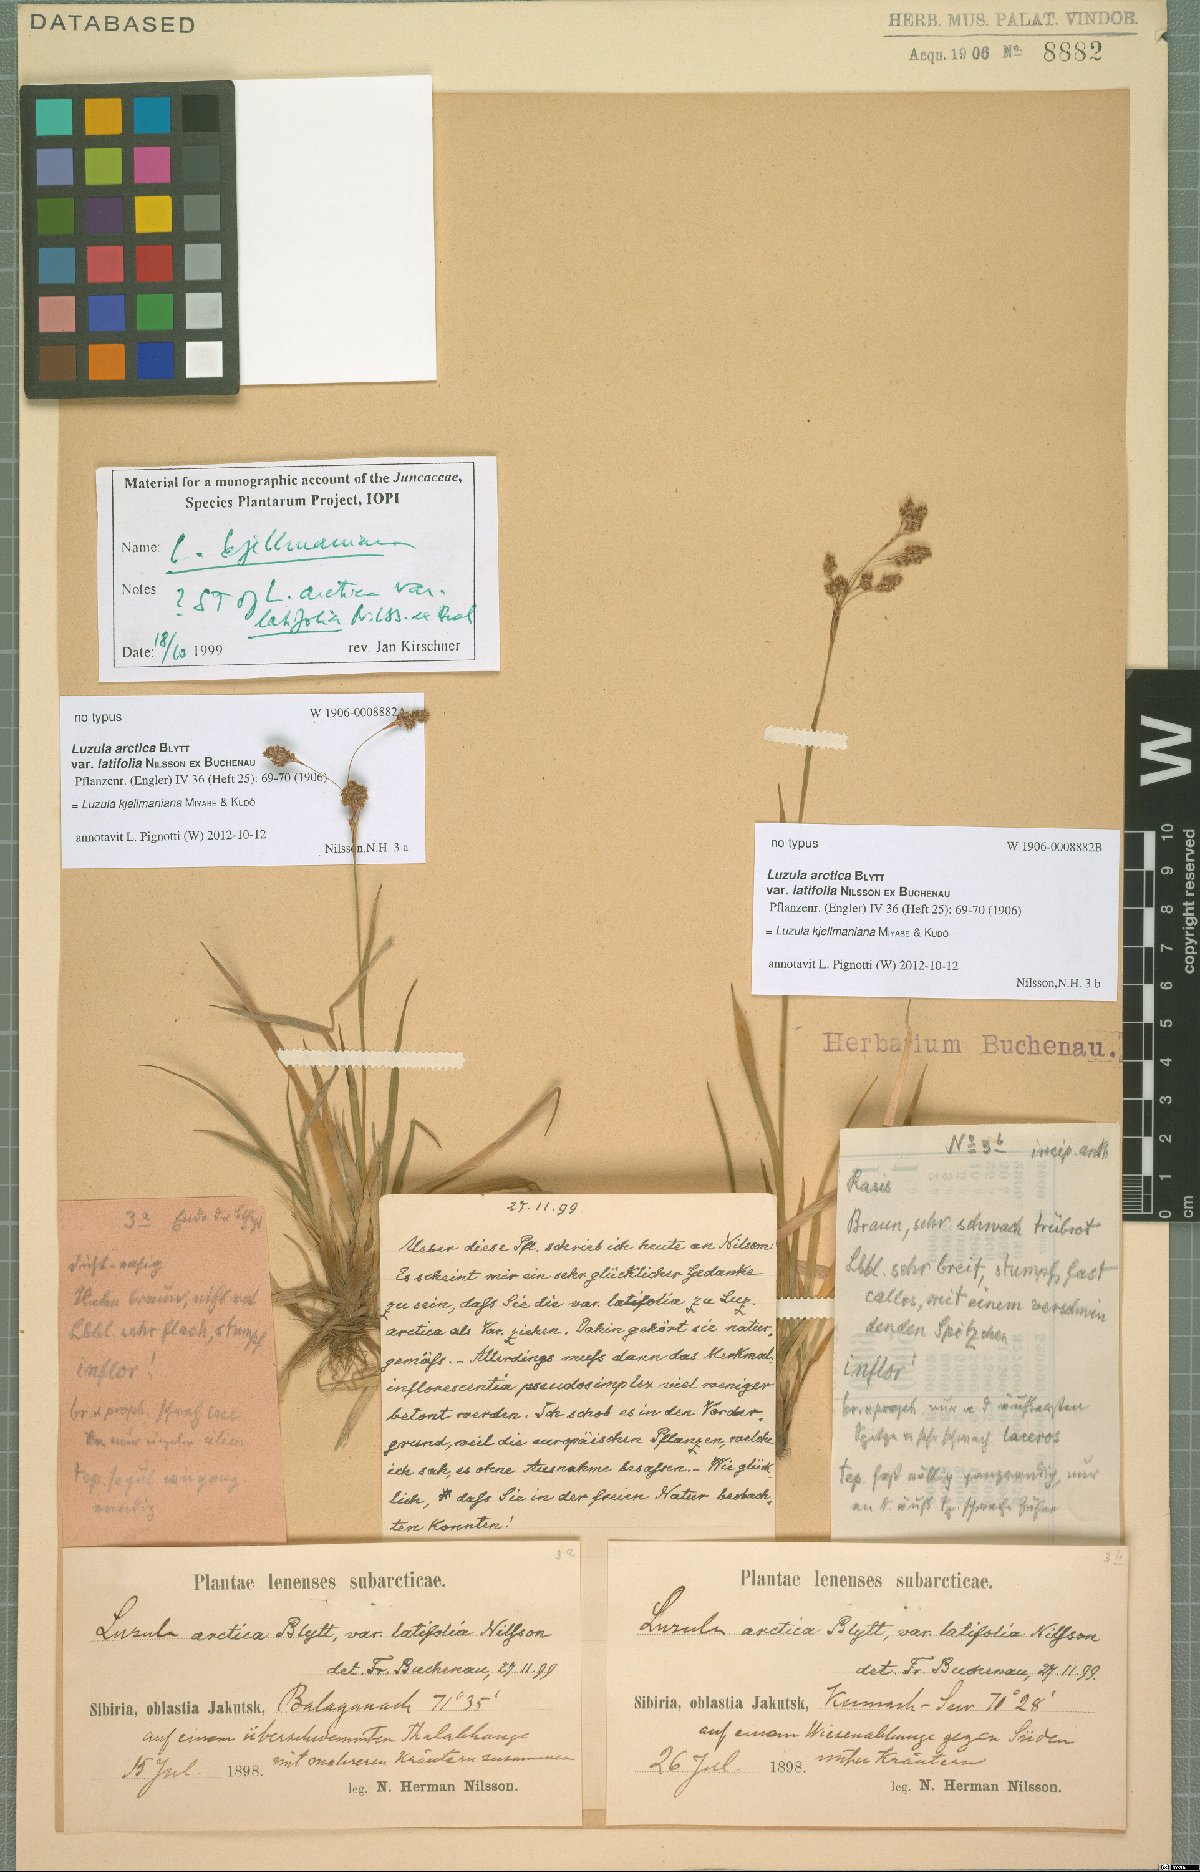 DATABASED
HERB. MUS. PALAT. VINDOB.
Acqu. 1906 No 8882
Material for a monographic account of the Juncaceae,
Species Plantarum Project, IOPI
Name: L. kjellmaniana
Notes ? ST of L. arctica var.
latifolia Nilss. ex Buch
Date: 18/10 1999 rev. Jan Kirschner
no typus W 1906-0008882A
Luzula arctica BLYTT
var. latifolia NILSSON EX BUCHENAU
Pflanzenr. (Engler) IV 36 (Heft 25): 69-70 (1906)
= Luzula kjellmaniana MIYABE & KUDÔ
annotavit L. Pignotti (W) 2012-10-12
Nilsson,N.H. 3 a
no typus W 1906-0008882B
Luzula arctica BLYTT
var. latifolia NILSSON EX BUCHENAU
Pflanzenr. (Engler) IV 36 (Heft 25): 69-70 (1906)
= Luzula kjellmaniana MIYABE & KUDÔ
annotavit L. Pignotti (W) 2012-10-12
Nilsson,N.H. 3 b
W
0 1 2 3 4 5 6 7 8 9 10
cm
copyright reserved
Herbarium Buchenau.
3a Ende der
dicht-rasig
braun,
Lbbl. sehr flach, stumpf
inflor!
27.11.99
Ueber diese Pfl. schrieb ich heute an Nilsson:
Es scheint mir ein sehr glücklicher Gedanke
zu sein, daſs Sie die var. latifolia zu Luz.
arctica als Var. ziehen. Dahin gehört sie natur-
gemäſs. – Allerdings muſs dann das Merkmal
inflorescentia pseudosimplex viel weniger
betont werden. Ich schob es in den Vorder-
grund, weil die europäischen Pflanzen, welche
ich sah, es ohne Ausnahme besaſsen. – Wie glück-
lich, daſs Sie in der freien Natur beobach-
ten konnten!
No 3b incip. anth
Rasis
Braun, sehr schwach trübrot
Lbbl. sehr breit, stumpf, fast
callos, mit einem verschwin
denden Spitzchen
inflor!
br. & proph. nur a d äußersten
Spitze sehr schwach laceros
tep. fast völlig ganzrandig, nur
3 a
Plantae lenenses subarcticae.
Luzula arctica Blytt, var. latifolia Nilſson
det. Fr. Buchenau, 27.11.99
Sibiria, oblastia Jakutsk, Balaganach 71° 35'
auf einem überschwemmten Thalabhange
15 Jul. 1898. mit mehreren Kräutern zusammen
leg. N. Herman Nilsson.
3 b
Plantae lenenses subarcticae.
Luzula arctica Blytt, var. latifolia Nilſson
det. Fr. Buchenau, 27.11.99.
Sibiria, oblastia Jakutsk, Kumach-Sur 71° 28'
auf einem Wiesenabhange gegen Süden
26 Jul. 1898. unter Kräutern
leg. N. Herman Nilsson.